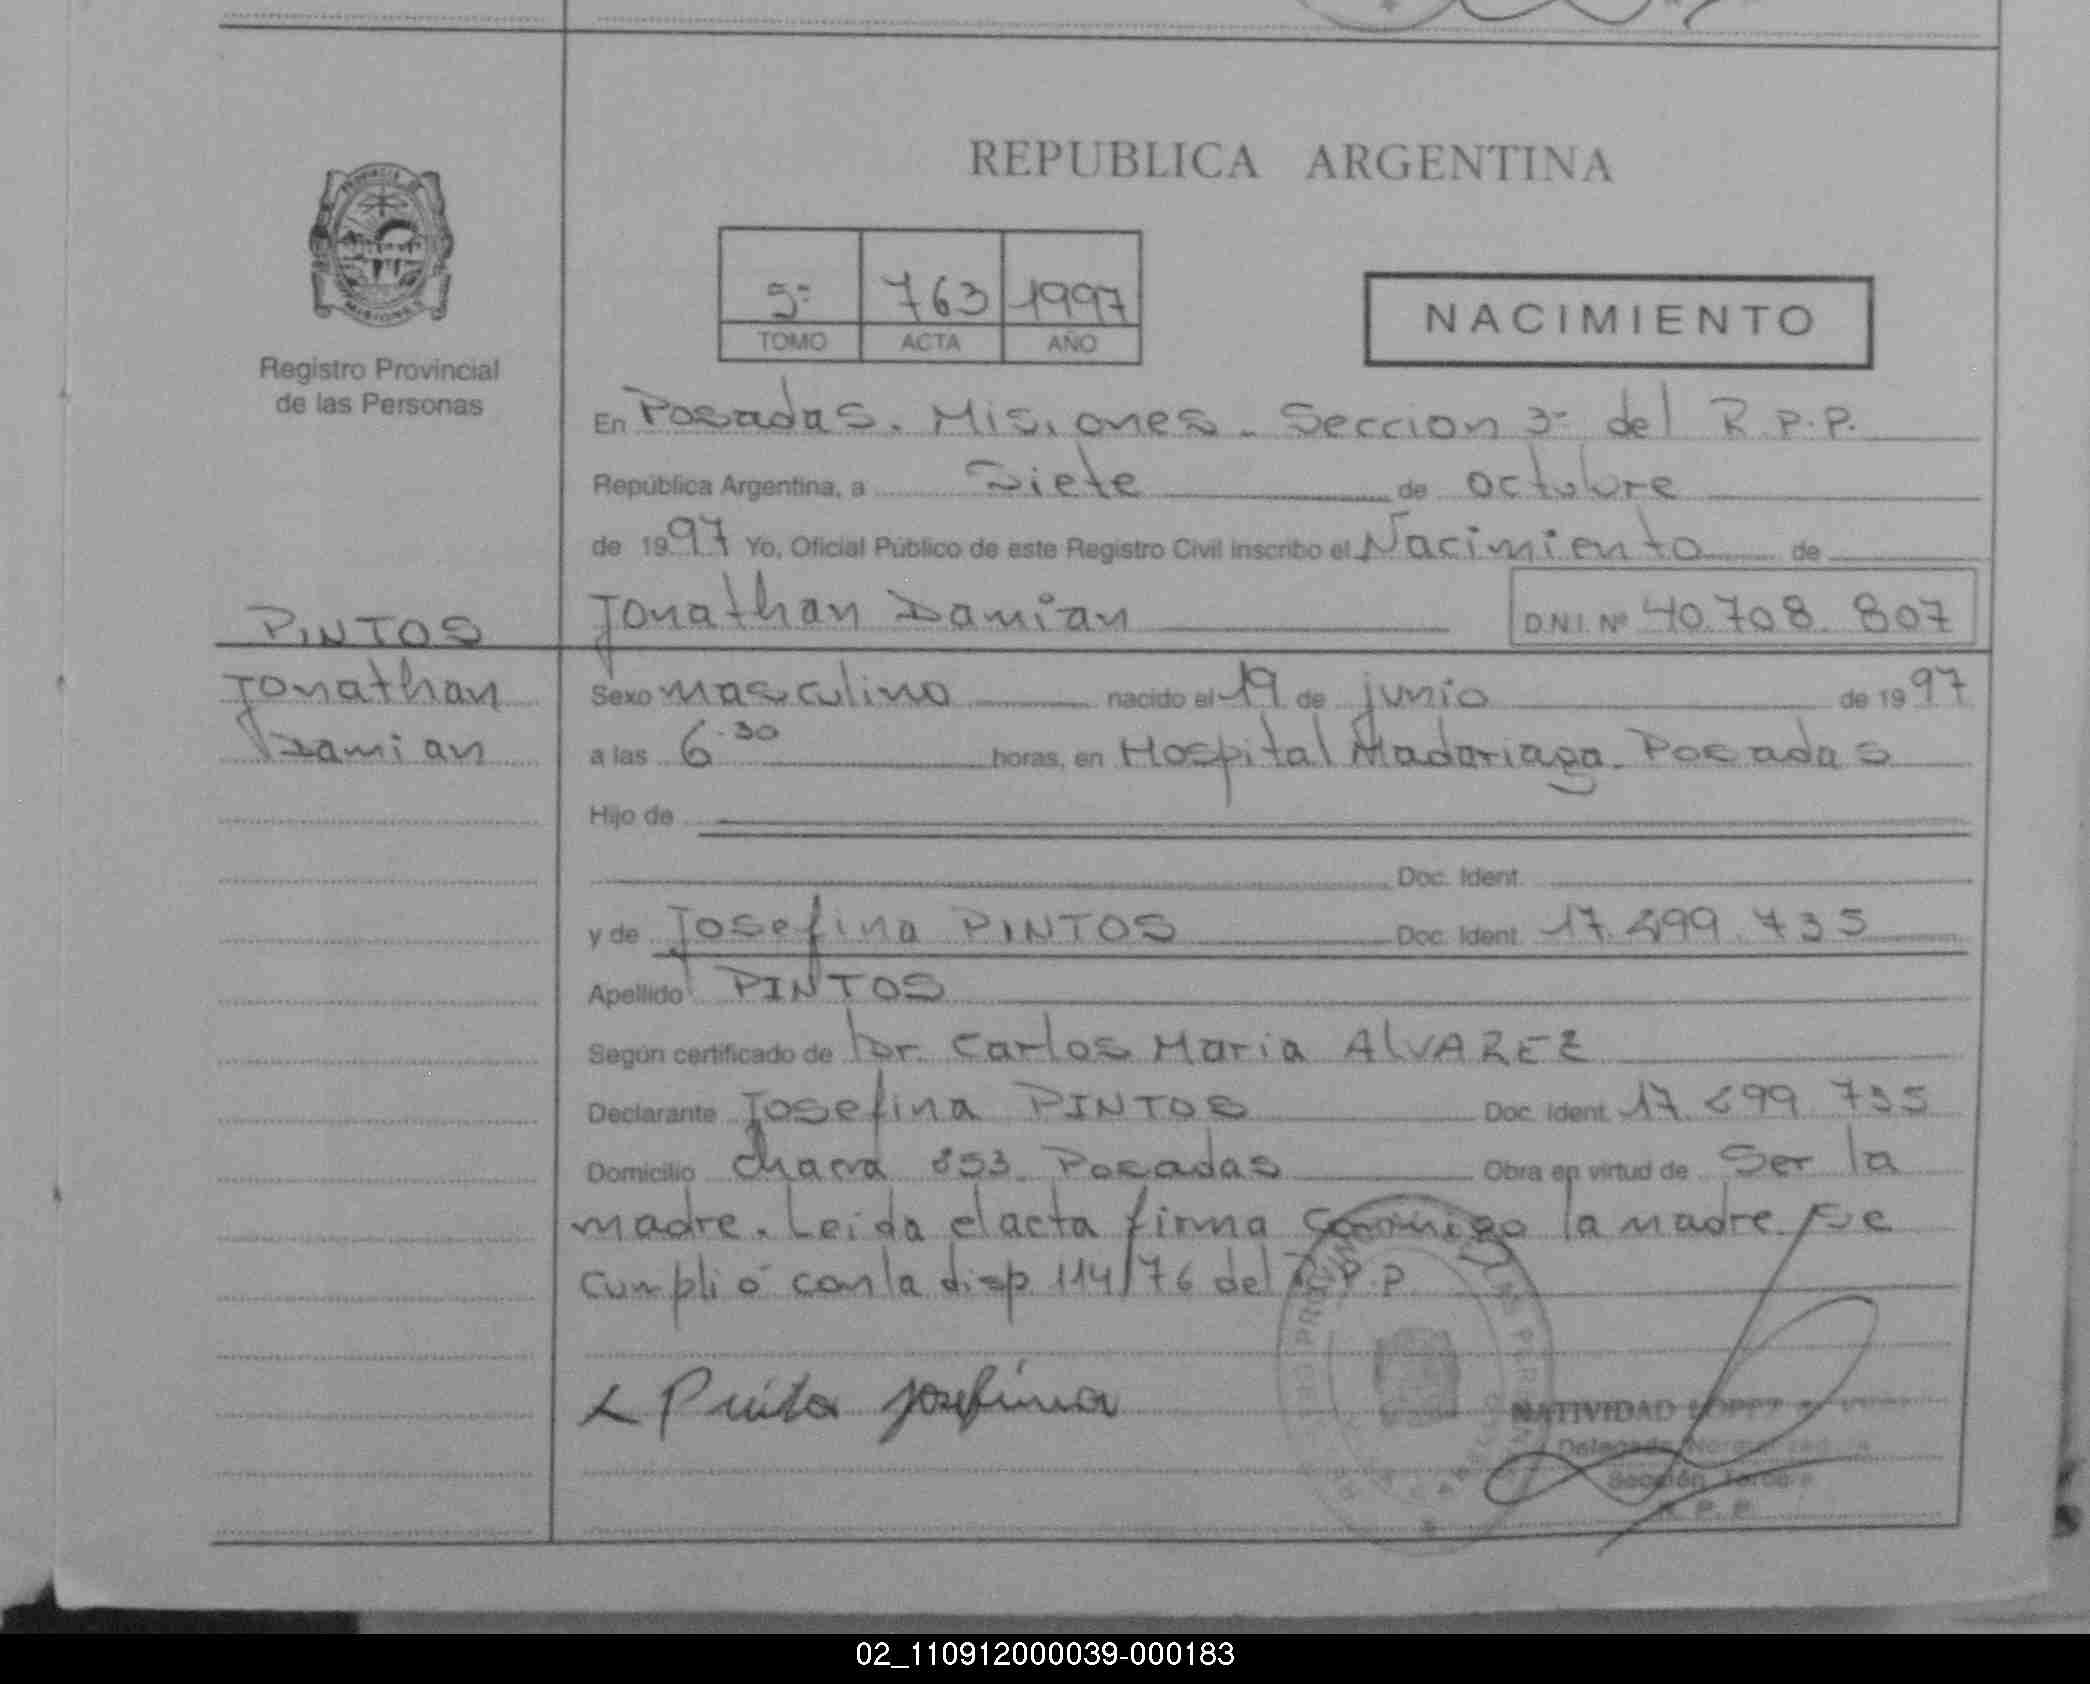 REPUBLICA ARGENTINA
5º 763 1997
TOMO ACTA AÑO
NACIMIENTO
Registro Provincial
de las Personas
En Posadas. Misiones - Seccion 3º del R.P.P.
República Argentina, a Siete de octubre
de 1997 Yo, Oficial Público de este Registro Civil inscribo el Nacimiento de
Jonathan Damian D.N.I. Nº 40.708.807
PINTOS
Jonathan
Damian
Sexo masculino nacido el 19 de junio de 1997
a las 6.30 horas, en Hospital Madariaga. Posadas
Hijo de
Doc. Ident.
y de Josefina PINTOS Doc. Ident. 17.499.735
Apellido PINTOS
Según certificado de Dr. Carlos Maria ALVAREZ
Declarante Josefina PINTOS Doc. Ident. 735
Domicilio chacra Posadas Obra en virtud de Ser la
madre. Leida el acta firma conmigo la madre. Se
cumplió con la disp. 114/76 del R.P.P.
Josefina
NATIVIDAD LOPEZ
Sección
R. P. P.
02_110912000039-000183